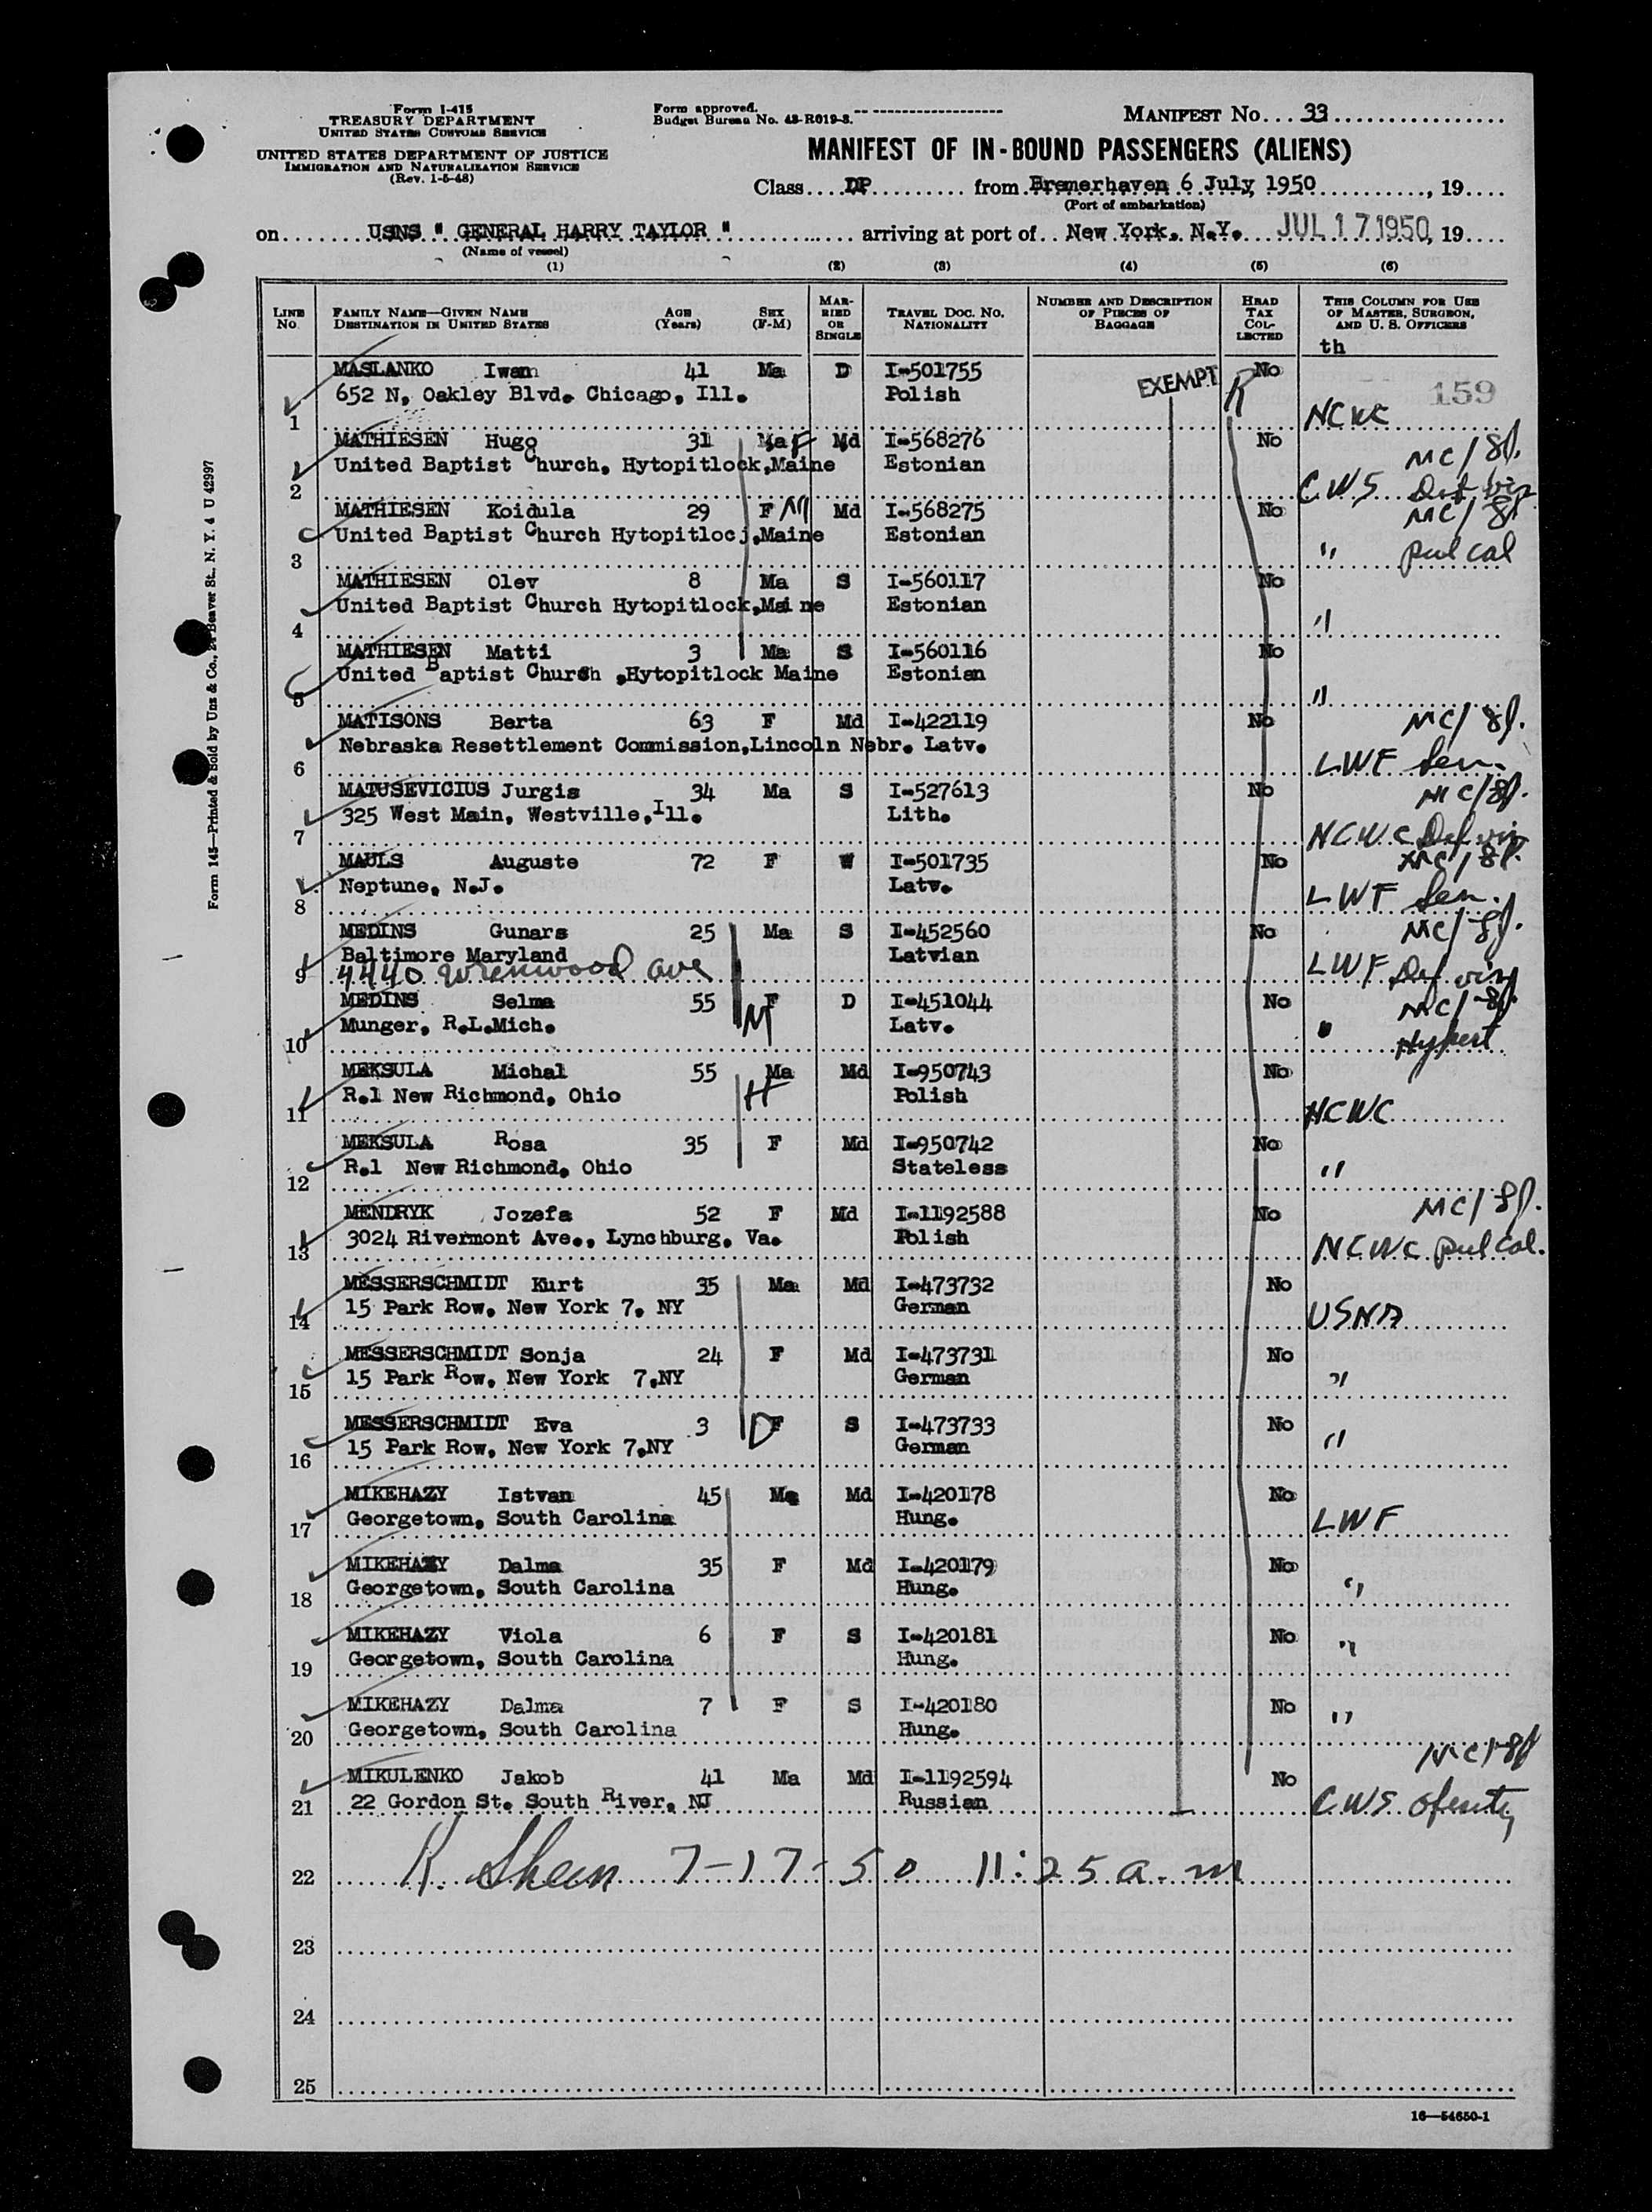 Form I-415
TREASURY DEPARTMENT
UNITED STATES CUSTOMS SERVICE
UNITED STATES DEPARTMENT OF JUSTICE
IMMIGRATION AND NATURALIZATION SERVICE
(Rev. 1-5-48)
Form approved.
Budget Bureau No. 43-R019-3.
MANIFEST No. 33
MANIFEST OF IN-BOUND PASSENGERS (ALIENS)
Class DP from Bremerhaven 6 July, 1950, 19
(Port of embarkation)
on USNS " GENERAL HARRY TAYLOR " arriving at port of New York, N.Y. JUL 17 1950, 19
(Name of vessel)
(1) (2) (3) (4) (5) (6)
LINE No. FAMILY NAME—GIVEN NAME DESTINATION IN UNITED STATES AGE (Years) SEX (F-M) MARRIED OR SINGLE TRAVEL DOC. No. NATIONALITY NUMBER AND DESCRIPTION OF PIECES OF BAGGAGE HEAD TAX COLLECTED THIS COLUMN FOR USE OF MASTER, SURGEON, AND U. S. OFFICERS
th
159
MASLANKO Iwan 41 Ma D I-501755 EXEMPT R No
1 652 N, Oakley Blvd. Chicago, Ill. Polish NCWC
MATHIESEN Hugo 31 Ma F Md I-568276 No MC/
2 United Baptist Church, Hytopitlock,Maine Estonian CWS Def vis
MATHIESEN Koidula 29 F M Md I-568275 No MC/
3 United Baptist Church Hytopitlocj,Maine Estonian " pul cal
MATHIESEN Olev 8 Ma S I-560117 No
4 United Baptist Church Hytopitlock,Maine Estonian "
MATHIESEN Matti 3 Ma S I-560116 No
5 United Baptist Church ,Hytopitlock Maine Estonian "
MATISONS Berta 63 F Md I-422119 No MC/
6 Nebraska Resettlement Commission,Lincoln Nebr. Latv. LWF Sen.
MATUSEVICIUS Jurgis 34 Ma S I-527613 No MC/
7 325 West Main, Westville,Ill. Lith. NCWC Def vis
MAULS Auguste 72 F W I-501735 No MC/
8 Neptune, N.J. Latv. LWF Sen.
MEDINS Gunars 25 Ma S I-452560 No MC/
Baltimore Maryland Latvian
9 4440 Wrenwood ave LWF Def vis
MEDINS Selma 55 F M D I-451044 No MC/
10 Munger, R.L.Mich. Latv. " Hypert
MEKSULA Michal 55 Ma H Md I-950743 No
11 R.1 New Richmond, Ohio Polish NCWC
MEKSULA Rosa 35 F Md I-950742 No
12 R.1 New Richmond, Ohio Stateless "
MENDRYK Jozefa 52 F Md I-1192588 No MC/
13 3024 Rivermont Ave., Lynchburg, Va. Polish NCWC pul cal.
MESSERSCHMIDT Kurt 35 Ma Md I-473732 No
14 15 Park Row, New York 7, NY German USNA
MESSERSCHMIDT Sonja 24 F Md I-473731 No
15 15 Park Row, New York 7,NY German "
MESSERSCHMIDT Eva 3 D F S I-473733 No
16 15 Park Row, New York 7,NY German "
MIKEHAZY Istvan 45 Ma Md I-420178 No
17 Georgetown, South Carolina Hung. LWF
MIKEHAZY Dalma 35 F Md I-420179 No
18 Georgetown, South Carolina Hung. "
MIKEHAZY Viola 6 F S I-420181 No
19 Georgetown, South Carolina Hung. "
MIKEHAZY Dalma 7 F S I-420180 No
20 Georgetown, South Carolina Hung. "
MIKULENKO Jakob 41 Ma Md I-1192594 No MC/
21 22 Gordon St. South River, NJ Russian CWS
22 7-17-50 11:25 a.m
23
24
25
16—54650-1
Form 145—Printed & Sold by Unz & Co., 24 Beaver St., N. Y. 4 U 42997